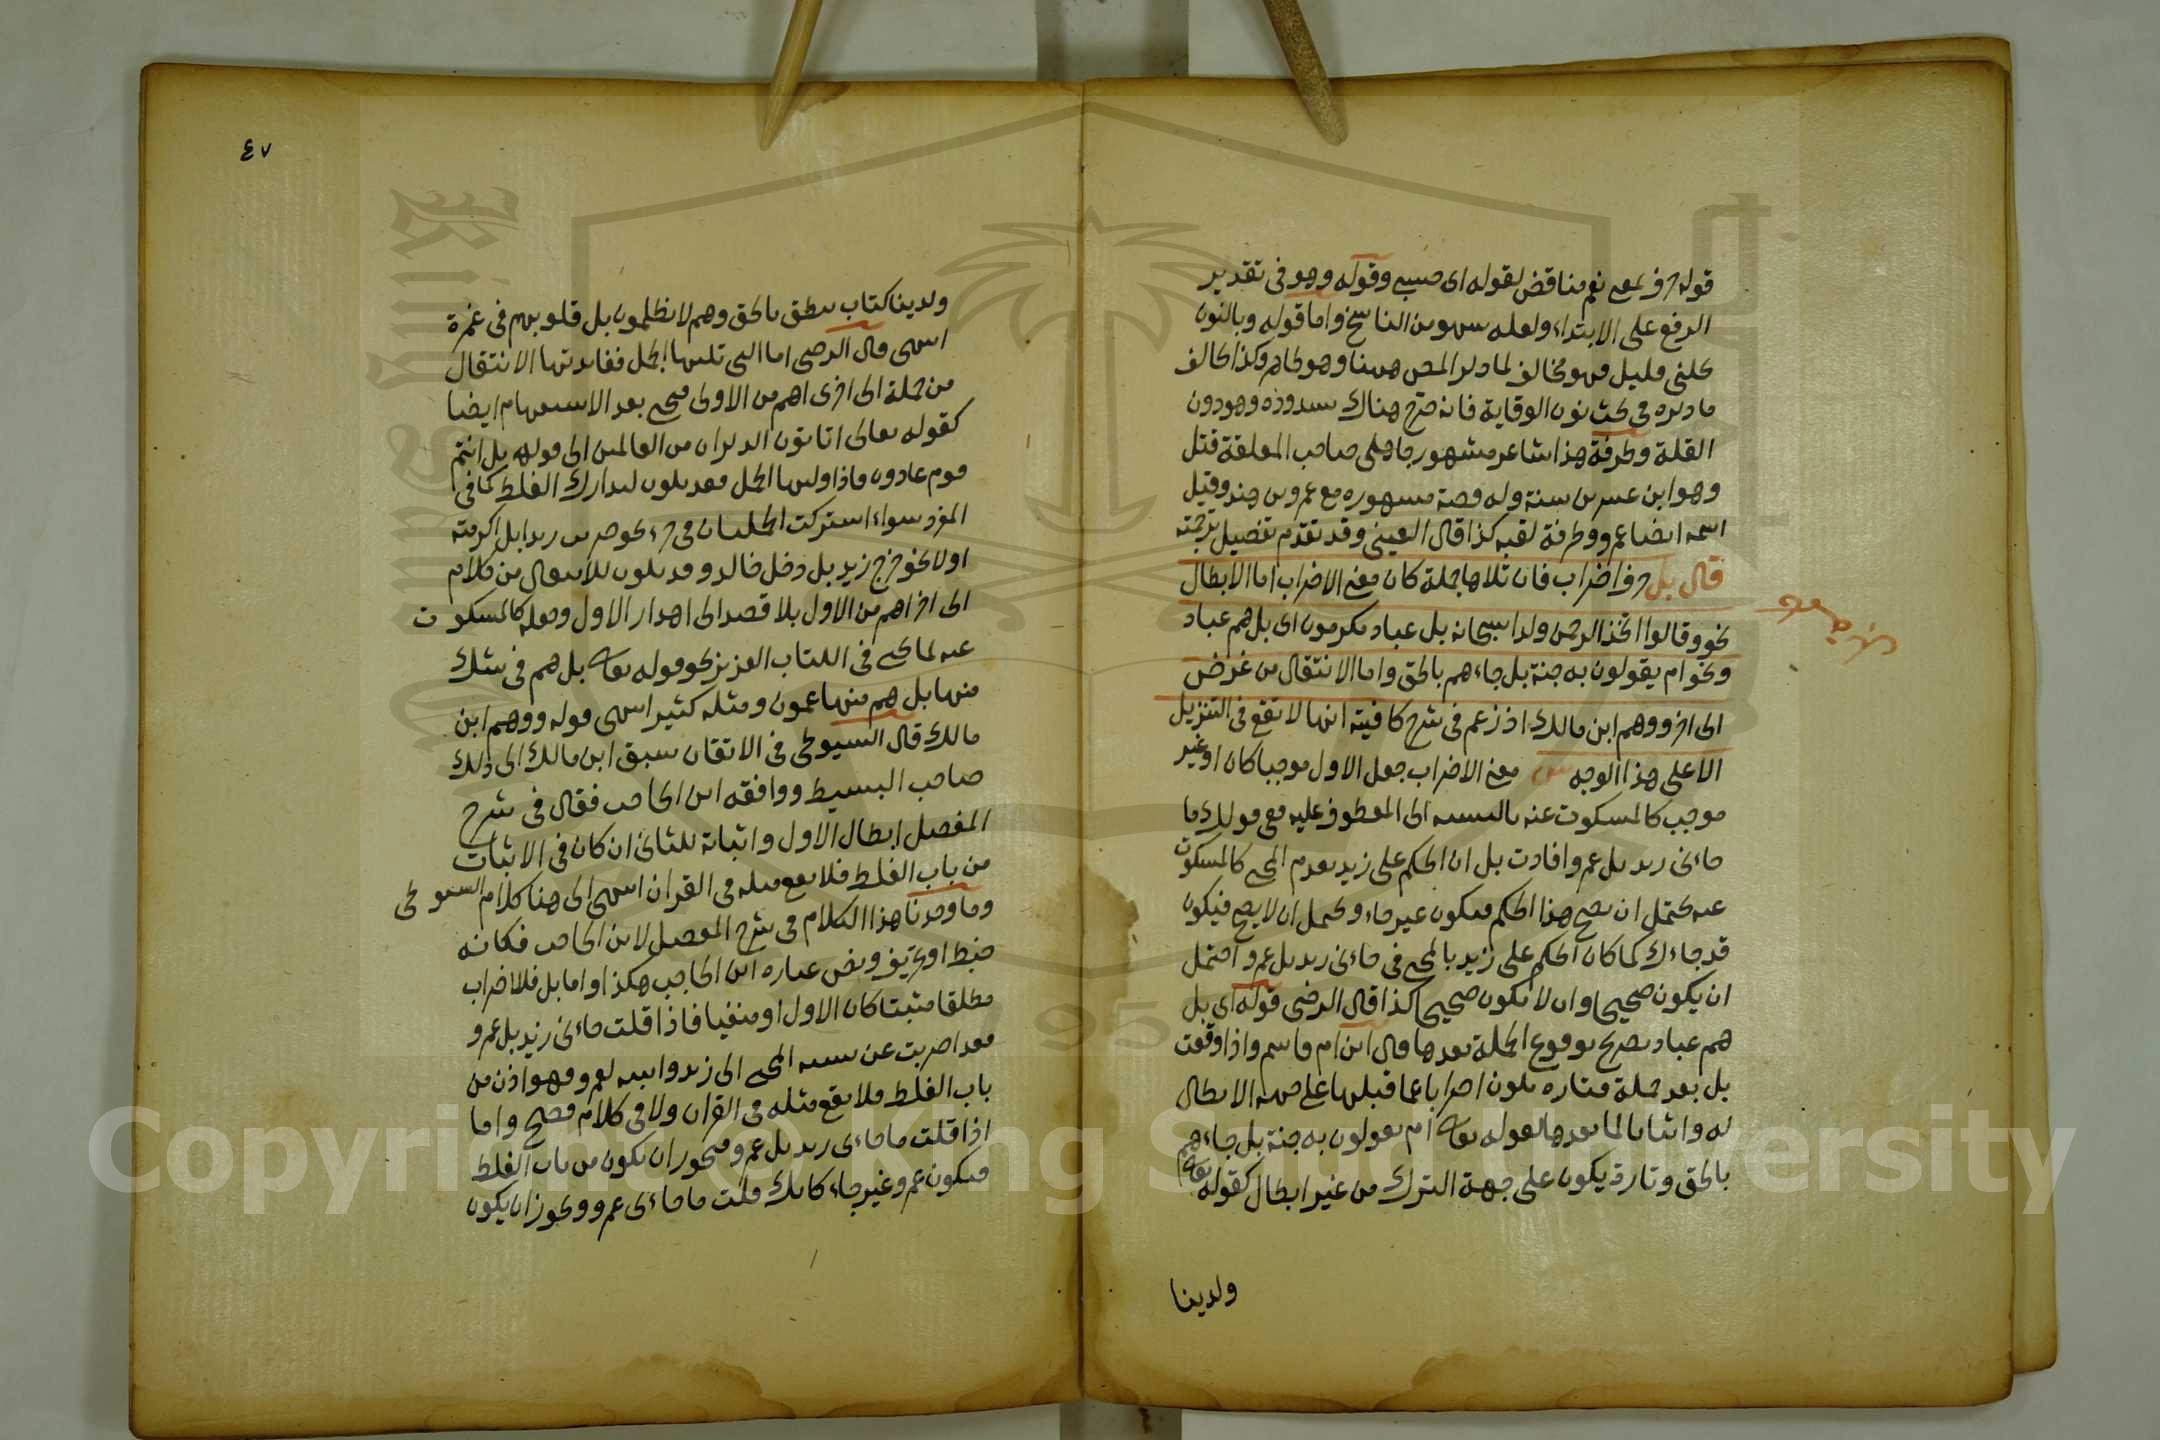 قوله حرف بمعنى نعم مناقض لقوله اى حسبى وقوله وهو فى تقدير
الرفع على الابتداء ولعله سهو من الناسخ واما قوله وبالنون
كلنى قليل فهو مخالف لما ذكر المص ههنا وهو ظاهر وكذا مخالف
ما ذكره فى بحث نون الوقاية فانه صرح هناك بشذوذه وهو دون
القلة وطرفة هذا شاعر مشهور جاهلى صاحب المعلقة قتل
وهو ابن عشرين سنة وله قصة مشهوره مع عمرو بن هند وقيل
اسمه ايضا عمرو وطرفة لقبه كذا قال العينى وقد تقدم تفصيل ترجمته
قال بل حرف اضراب فان تلاها جملة كان معنى الاضراب اما الابطال
نحو وقالوا اتخذ الرحمن ولدا سبحانه بل عباد مكرمون اى بل هم عباد
ونحو ام يقولون به جنة بل جاءهم بالحق واما الانتقال من غرض
الى اخر ووهم ابن مالك اذ زعم فى شرح كافيته انها لا تقع فى التنزيل
الا على هذا الوجه ش معنى الاضراب جعل الاول موجبا كان او غير
موجب كالمسكوت عنه بالنسبه الى المعطوف عليه ففى قولك ما
جاءنى زيد بل عمرو افادت بل ان الحكم على زيد بعدم المجئ كالمسكوت
عنه يحتمل ان يصح هذا الحكم فيكون غير جاء ويحتمل ان لا يصح فيكون
قد جاءك كما كان الحكم على زيد بالمجئ فى جاءنى زيد بل عمرو احتمل
ان يكون صحيحا وان لا يكون صحيحا كذا قال الرضى قوله اى بل
هم عباد تصريح بوقوع الجملة بعدها قال ابن ام قاسم واذا وقعت
بل بعد جملة فتاره يكون اضرابا عما قبلها على جهة الابطال
له واثباتا لما بعدها كقوله تعالى ام يقولون به جنة بل جاءهم
بالحق وتارة يكون على جهة الترك من غير ابطال كقوله تعالى
ولدينا
٤٧
ولدينا كتاب ينطق بالحق وهم لا يظلمون بل قلوبهم فى غمرة
انتهى قال الرضى اما التى تليها الجمل ففائدتها الانتقال
من جملة الى اخرى اهم من الاولى فتجئ بعد الاستفهام ايضا
كقوله تعالى اتاتون الذكران من العالمين الى قوله بل انتم
قوم عادون فاذا وليها الجمل فقد يكون لتدارك الغلط كما فى
المفرد سواء اشتركت الجملتان فى جزء نحو ضربت زيدا بل اكرمته
او لا نحو خرج زيد بل دخل خالد وقد يكون للانتقال من كلام
الى اخر اهم من الاول بلا قصد الى اهدار الاول وجعله كالمسكوت
عنه لما يجئ فى الكتاب العزيز نحو قوله تعالى بل هم فى شك
منها بل هم منها عمون ومثله كثير انتهى قوله ووهم ابن
مالك قال السيوطى فى الاتقان سبق ابن مالك الى ذلك
صاحب البسيط ووافقه ابن الحاجب فقال فى شرح
المفصل ابطال الاول واثباته للثانى ان كان فى الاثبات
من باب الغلط فلا يقع مثله فى القران انتهى الى هنا كلام السيوطى
وما وجدنا هذا الكلام فى شرح المفصل لابن الحاجب فكانه
خبط او تحريف ونص عباره ابن الحاجب هكذا واما بل فللاضراب
مطلقا مثبتا كان الاول او منفيا فاذا قلت جاءنى زيد بل عمرو
فقد اضربت عن نسبه المجئ الى زيد واثبته لعمرو فهو اذن من
باب الغلط فلا يقع مثله فى القران ولا فى كلام فصيح واما
اذا قلت ما جاءنى زيد بل عمرو فيجوز ان يكون من باب الغلط
فيكون عمرو غير جاء كانك قلت ما جاءنى عمرو ويجوز ان يكون
Copyright © King Saud University